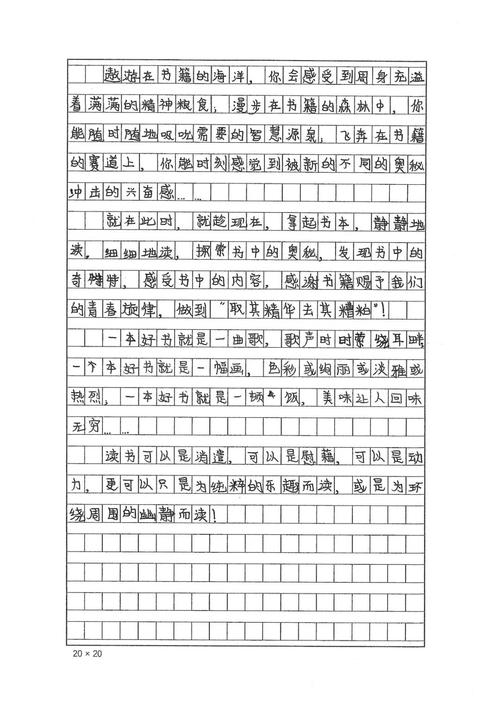 遨游在书籍的海洋，你会感受到周身充溢
着满满的精神粮食，漫步在书籍的森林中，你
能随时随地吸吮需要的智慧源泉；飞奔在书籍
的赛道上，你能时刻感觉到被新的不同的奥秘
冲击的兴奋感……
就在此时，就趁现在，拿起书本，静静地
读，细细地读，探索书中的奥秘，发现书中的
奇特，感受书中的内容，感谢书籍赐予我们
的青春旋律，做到“取其精华去其糟粕”！
一本好书就是一曲歌，歌声时时萦绕耳畔；
一个本好书就是一幅画，色彩或绚丽或淡雅或
热烈，一本好书就是一顿饭，美味让人回味
无穷……
读书可以是消遣，可以是慰藉，可以是动
力，更可以只是为纯粹的乐趣而读，或是为环
绕周围的幽静而读！
20×20